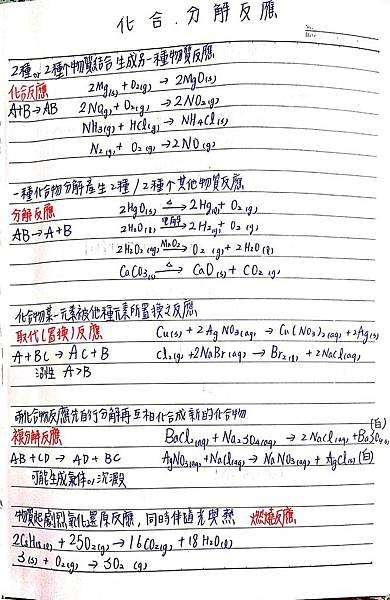 化合.分解反應
2種or2種个物質結合生成另一種物質反應
化合反應 2Mg(s) + O₂(g) → 2MgO(s)
A+B→AB 2NO(g) + O₂(g) → 2NO₂(g)
NH₃(g) + HCl(g) → NH₄Cl(s)
N₂(g) + O₂(g) → 2NO(g)
一種化合物分解產生2種/2種个其他物質反應
分解反應 2HgO(s) —△→ 2Hg(l) + O₂(g)
AB→A+B 2H₂O(l) —電解→ 2H₂(g) + O₂(g)
2H₂O₂(aq) —MnO₂→ O₂(g) + 2H₂O(l)
CaCO₃(s) —△→ CaO(s) + CO₂(g)
化合物某一元素被他種元素所置換之反應
取代(置換)反應 Cu(s) + 2AgNO₃(aq) → Cu(NO₃)₂(aq) + 2Ag(s)
A+BC→AC+B Cl₂(g) + 2NaBr(aq) → Br₂(l) + 2NaCl(aq)
活性 A>B
兩化合物反應先自行分解再互相化合成新的化合物
複分解反應 BaCl₂(aq) + Na₂SO₄(aq) → 2NaCl(aq) + BaSO₄(s) (白)
AB+CD→AD+BC AgNO₃(aq) + NaCl(aq) → NaNO₃(aq) + AgCl(s) (白)
可能生成氣体or沉澱
物質起劇烈氧化還原反應,同時伴隨光與熱 燃燒反應
2C₈H₁₈(l) + 25O₂(g) → 16CO₂(g) + 18H₂O(l)
S(s) + O₂(g) → SO₂(g)